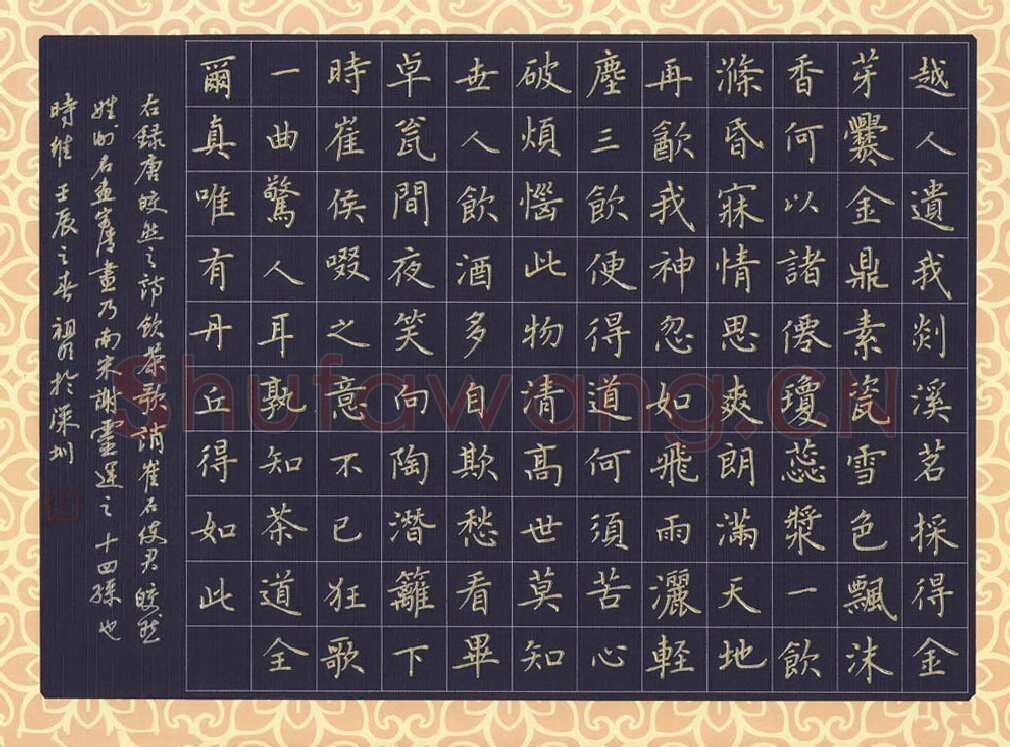 越人遺我剡溪茗採得金
芽爨金鼎素瓷雪色飄沫
香何以諸僊瓊蕊漿一飲
滌昏寐情思爽朗滿天地
再㱃我神忽如飛雨灑軽
塵三飲便得道何須苦心
破煩惱此物清高世莫知
世人飲酒多自欺愁看畢
卓瓮間夜笑向陶潛籬下
時崔侯啜之意不已狂歌
一曲驚人耳孰知茶道全
爾真唯有丹丘得如此
右録唐皎然之詩飲茶歌誚崔石使君皎然
姓名晝字晝乃南宋謝靈運之十四孫也
時維壬辰之春祖於深圳
Shufawang.CN